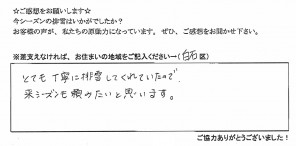 ☆ご感想をお願いします☆
今シーズンの排雪はいかがでしたか？
お客様の声が、私たちの原動力になっています。ぜひ、ご感想をお聞かせ下さい。
※差支えなければ、お住まいの地域をご記入ください→(白石区)
とても丁寧に排雪してくれていたので、
来シーズンも頼みたいと思います。
ご協力ありがとうございました！